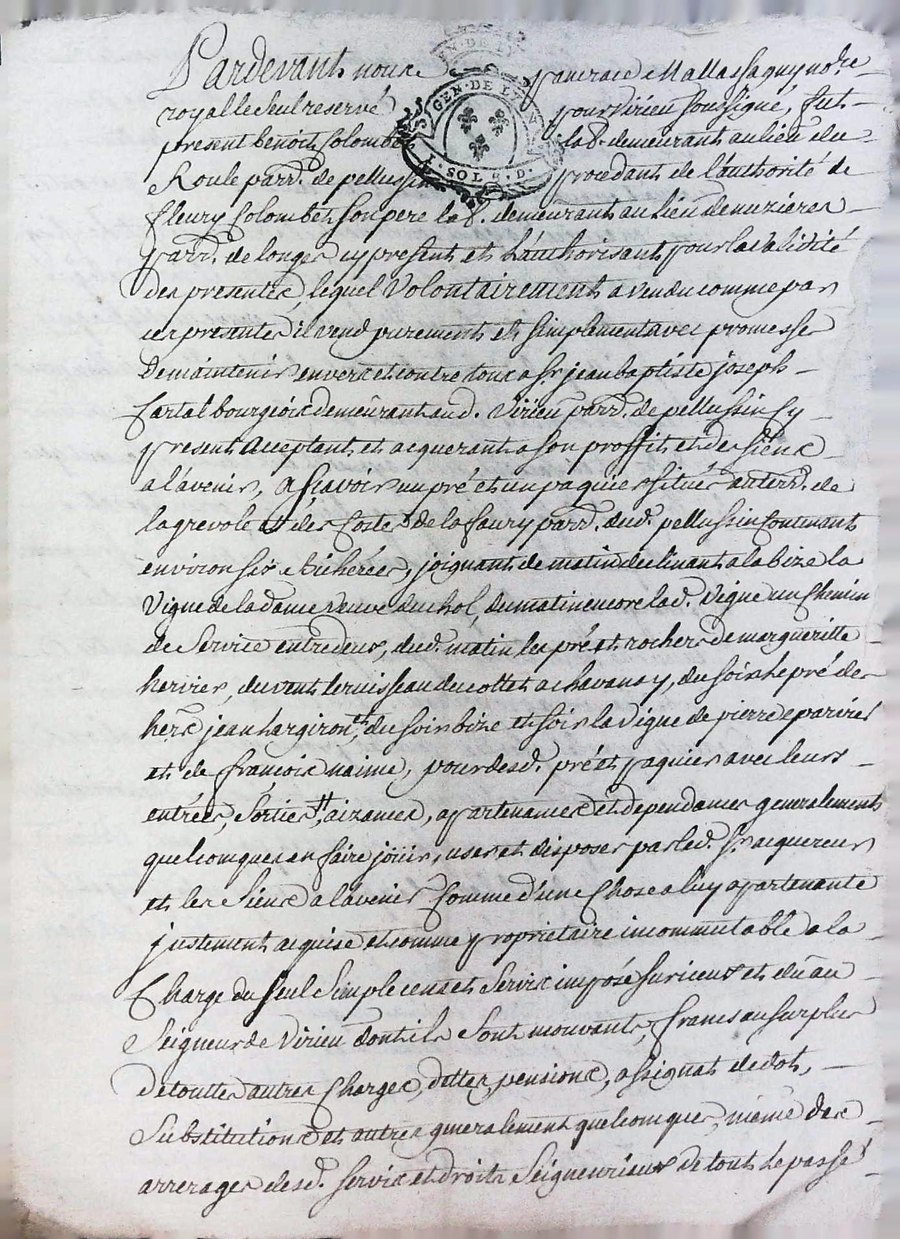 Pardevant nous pancrace Mallassagny no.re
royal le seul reservé pour virieu soussigné, fut
GEN. DE LYON
1. SOL 4. D.
present benoit Colombet lab. demeurant au lieu du
Roule parr. de pellussin procedant de l'authorité de
fleury Colombet son pere lab. demeurant au lieu de muzieres
parr. de longes cy present et l'authorisant pour la validité
des presentes, lequel Volontairement a vendu comme par
ces presentes il vend purement et simplement avec promesse
De maintenir envers et contre tous a sr. jean baptiste joseph
Cartal bourgeois demeurant aud. Virieu parr. de pellussin cy
present acceptant et acquerant a son proffit et des siens
a l'avenir, a scavoir un pré et un paquier situés au terr. de
la grevole et des Costes de la faury parr. dud. pellussin Contenant
environ six bicherées, joignant de matin declinant a la bize la
Vigne de la dame veuve duchol, du matin encore lad. Vigne un Chemin
de service entredeux, dud. matin les pré et rochers de margueritte
hervier, du vent le ruisseau du cottet a chavanay, du soir le pré des
hers. jean hargiront, du soir bize et soir la vigne de pierre eparvier
et de françois naime, pour desd. pré et paquier avec leurs
entrées, sorties, aizances, apartenances et dependances generalement
quelconques en faire joüir, user et disposer par led. sr. acquereur
et les siens a l'avenir Comme d'une Chose a luy apartenante
justement acquise et comme proprietaire incommutable a la
Charge du seul simple cens et servis imposé sur iceux et dû au
Seigneur de Virieu dont ils sont mouvants, francs au surplus
de touttes autres Charges, dettes, pensions, assignat de dot,
Substitutions et autres generalement quelconques, même des
arrerages desd. servis et droits Seigneuriaux de tout le passé